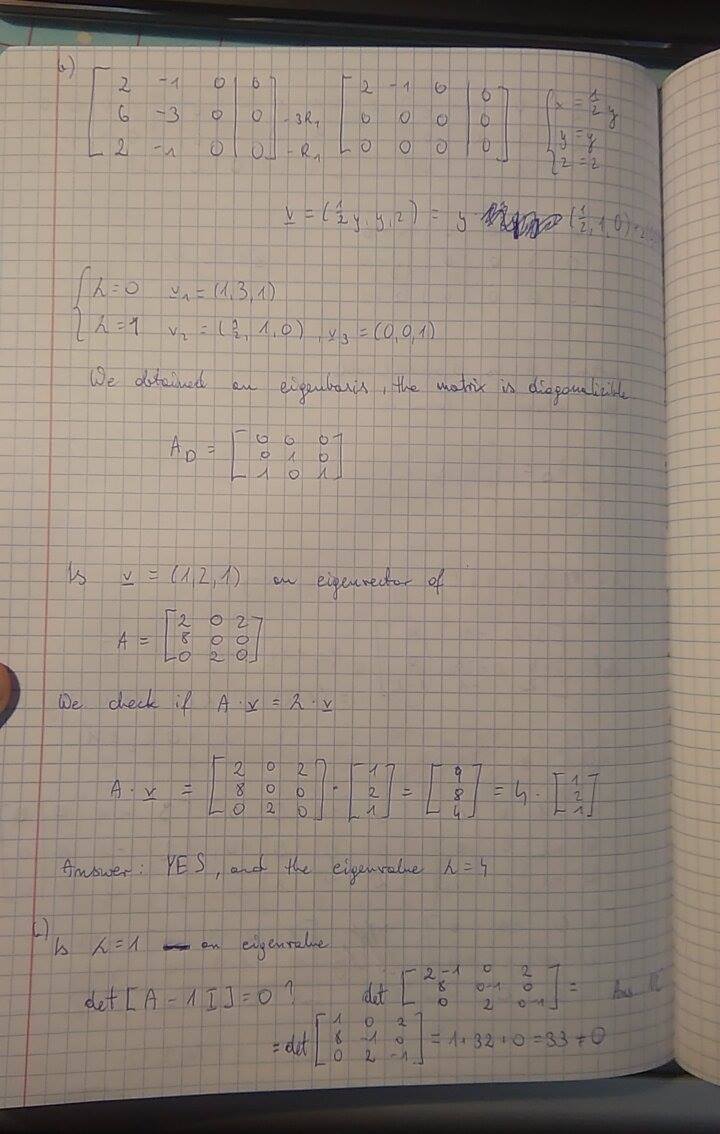 b)
[2 -1 0 | 0; 6 -3 0 | 0; 2 -1 0 | 0] -3R₁ -R₁ [2 -1 0 | 0; 0 0 0 | 0; 0 0 0 | 0] { x = 1/2 y
y = y
z = z
v = (1/2 y, y, z) = y (1/2, 1, 0) + z
{ λ=0 v₁ = (1,3,1)
λ=1 v₂ = (1/2, 1, 0), v₃ = (0,0,1)
We obtained an eigenbasis, the matrix is diagonalizible
A_D = [0 0 0; 0 1 0; 1 0 1]
Is v = (1,2,1) an eigenvector of
A = [2 0 2; 8 0 0; 0 2 0]
We check if A · v = λ · v
A · v = [2 0 2; 8 0 0; 0 2 0] · [1; 2; 1] = [4; 8; 4] = 4 · [1; 2; 1]
Answer: YES, and the eigenvalue λ=4
c)
Is λ=1 an eigenvalue
det [A - 1 I] = 0 ? det [2-1 0 2; 8 0-1 0; 0 2 0-1] =
= det [1 0 2; 8 -1 0; 0 2 -1] = 1 + 32 + 0 = 33 ≠ 0